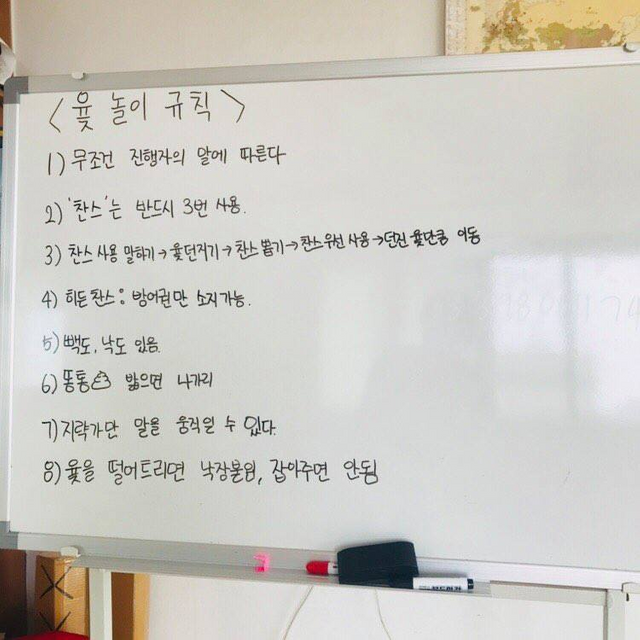 <윷놀이 규칙>
1) 무조건 진행자의 말에 따른다
2) '찬스'는 반드시 3번 사용.
3) 찬스 사용 말하기→윷던지기→찬스 뽑기→찬스우선 사용→던진 윷만큼 이동
4) 히든찬스: 방어권만 소지가능.
5) 빽도, 낙도 있음.
6) 똥통 밟으면 나가리
7) 지략가만 말을 움직일 수 있다.
8) 윷을 떨어트리면 낙장불입, 잡아주면 안됨